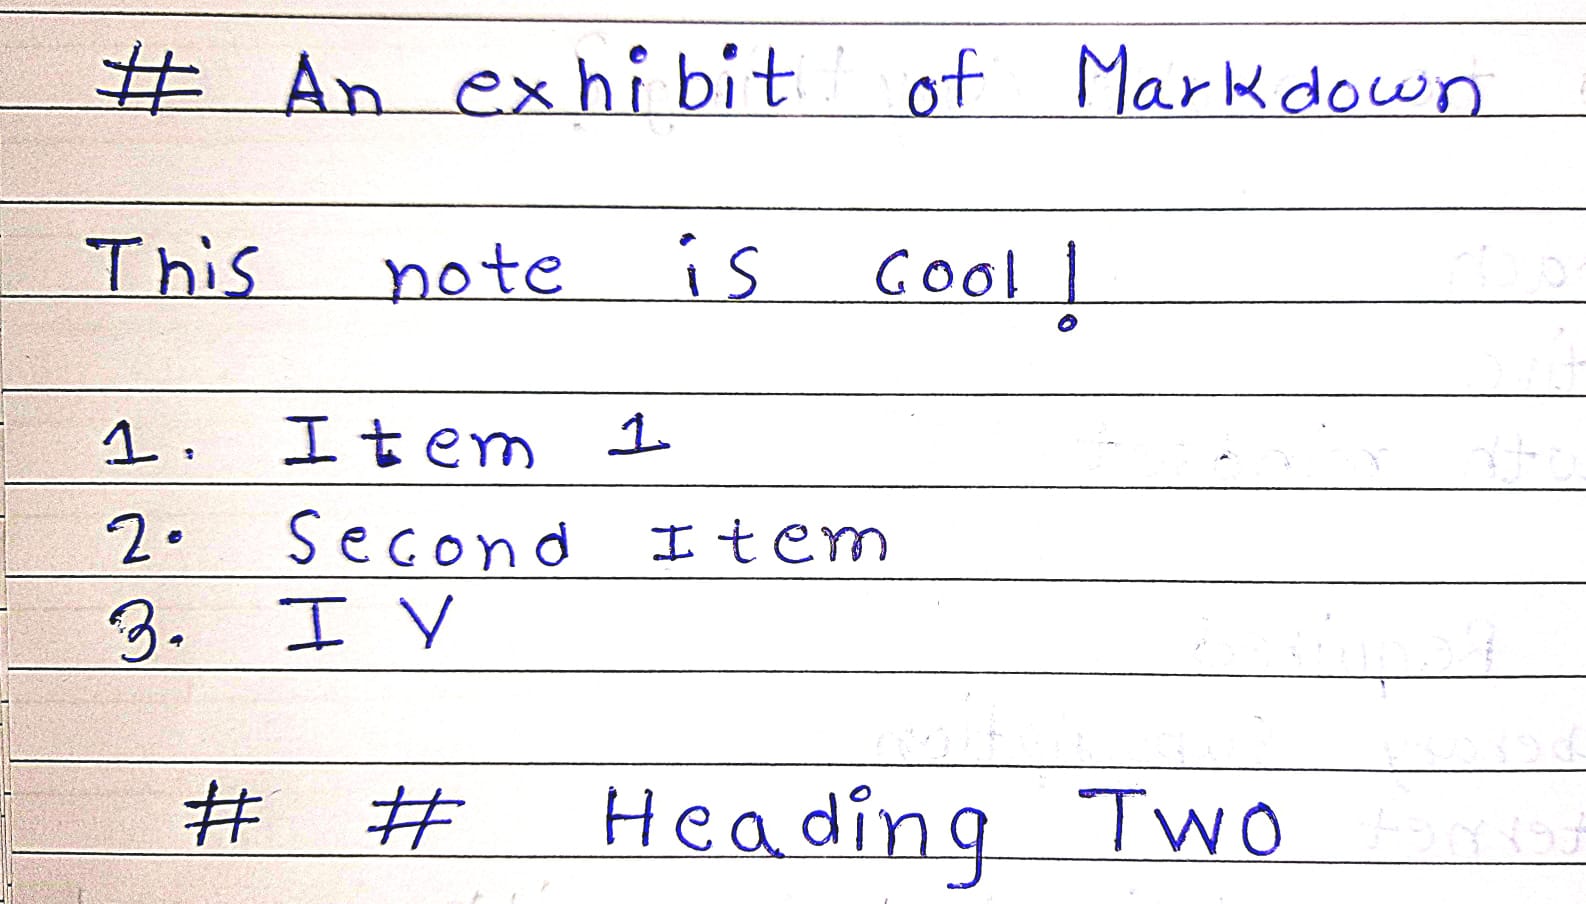 # An exhibit of Markdown
This note is cool!
1. Item 1
2. Second Item
3. IV
# # Heading Two